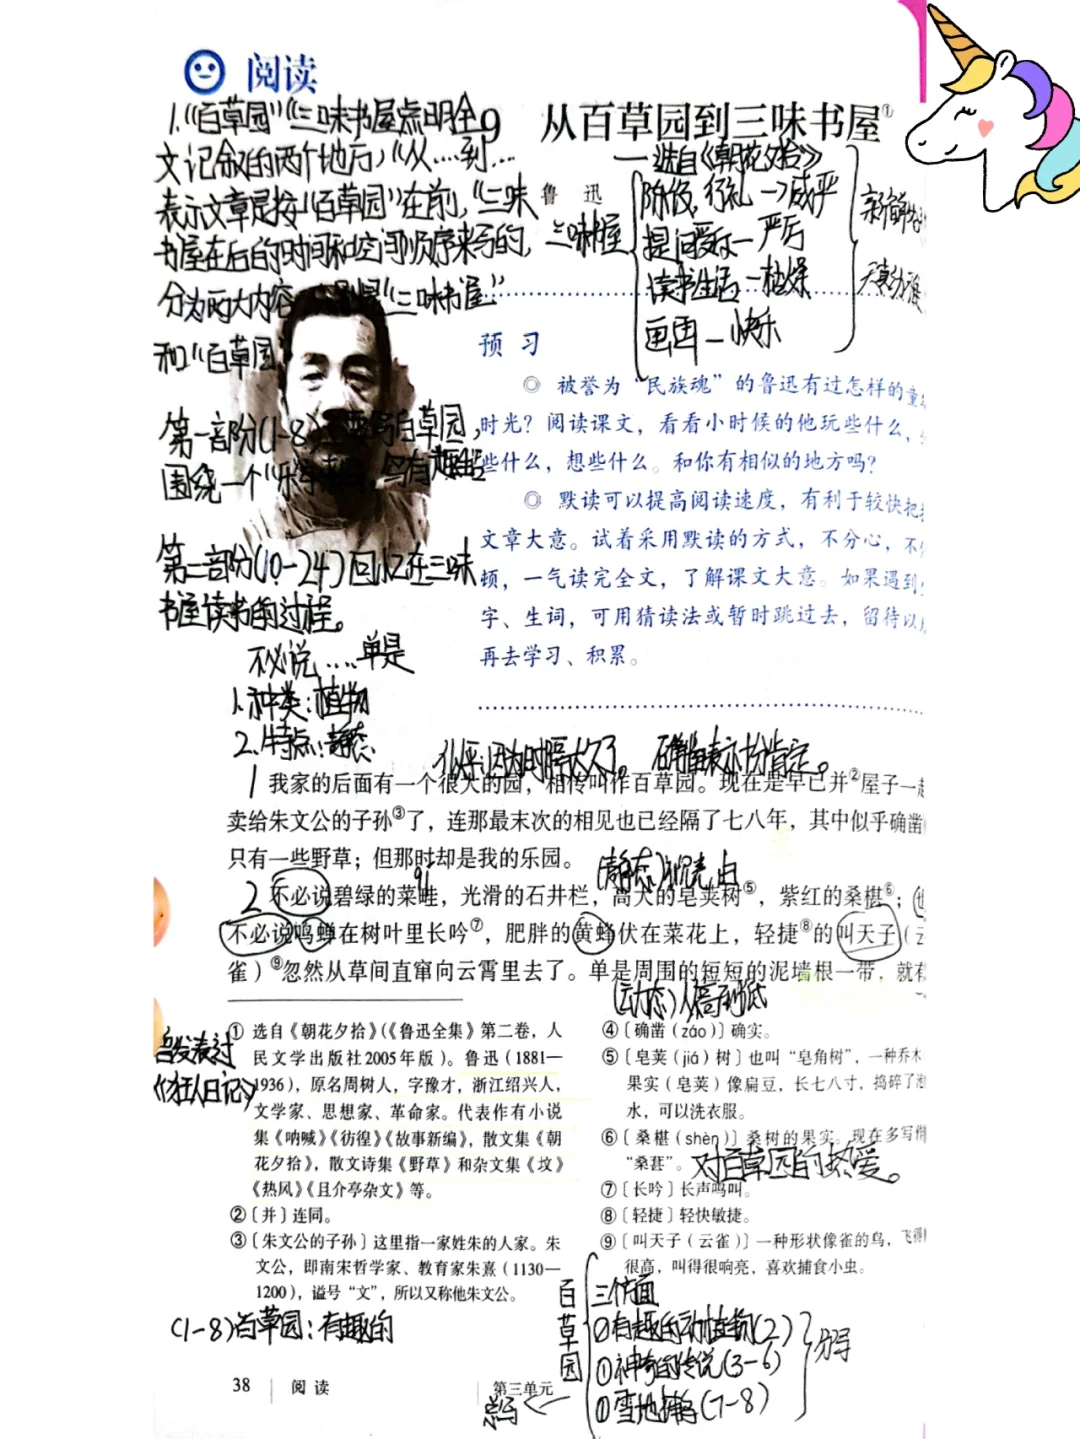 阅读
9 从百草园到三味书屋①
鲁迅
1.“百草园”“三味书屋点明全
文记叙的两个地方,“从……到…
表示文章是按“百草园”在前,“三味
书屋在后的时间和空间顺序来写的,
分为两大内容
“三味书屋”
和“百草园
第一部分(1-8)
写百草园,
围绕一个“乐
第二部分(10-24)回忆在三味
书屋读书的过程。
不必说……单是
1.种类:植物
2.特点:静态
—选自《朝花夕拾》
三味书屋
行礼→威严
严厉
读书生活—枯燥
画画—快乐
预习
◎ 被誉为“民族魂”的鲁迅有过怎样的童
时光?阅读课文,看看小时候的他玩些什么,
些什么,想些什么。和你有相似的地方吗?
◎ 默读可以提高阅读速度,有利于较快把
文章大意。试着采用默读的方式,不分心,不
顿,一气读完全文,了解课文大意。如果遇到
字、生词,可用猜读法或暂时跳过去,留待以
再去学习、积累。
似乎:因为时隔太久了。确凿表示十分肯定。
1 我家的后面有一个很大的园,相传叫作百草园。现在是早已并②屋子一起
卖给朱文公的子孙③了,连那最末次的相见也已经隔了七八年,其中似乎确凿
只有一些野草;但那时却是我的乐园。
(静态)
2 不必说碧绿的菜畦,光滑的石井栏,高大的皂荚树⑤,紫红的桑椹⑥;也
不必说鸣蝉在树叶里长吟⑦,肥胖的黄蜂伏在菜花上,轻捷⑧的叫天子(云
雀)⑨忽然从草间直窜向云霄里去了。单是周围的短短的泥墙根一带,就有
(动态)从高到低
① 选自《朝花夕拾》(《鲁迅全集》第二卷,人
民文学出版社2005年版)。鲁迅(1881—
1936),原名周树人,字豫才,浙江绍兴人,
文学家、思想家、革命家。代表作有小说
集《呐喊》《彷徨》《故事新编》,散文集《朝
花夕拾》,散文诗集《野草》和杂文集《坟》
《热风》《且介亭杂文》等。
② 〔并〕连同。
③ 〔朱文公的子孙〕这里指一家姓朱的人家。朱
文公,即南宋哲学家、教育家朱熹(1130—
1200),谥号“文”,所以又称他朱文公。
发表过
《狂人日记》
④ 〔确凿(záo)〕确实。
⑤ 〔皂荚(jiá)树〕也叫“皂角树”,一种乔木
果实(皂荚)像扁豆,长七八寸,捣碎了泡
水,可以洗衣服。
⑥ 〔桑椹(shèn)〕桑树的果实。现在多写作
“桑葚”。
对百草园的热爱。
⑦ 〔长吟〕长声鸣叫。
⑧ 〔轻捷〕轻快敏捷。
⑨ 〔叫天子(云雀)〕一种形状像雀的鸟,飞得
很高,叫得很响亮,喜欢捕食小虫。
(1-8)百草园:有趣的
百草园
三个方面
①有趣的动植物(2)
①神奇的传说(3-6)
①雪地捕鸟(7-8)
分写
总写
38 阅读
第三单元